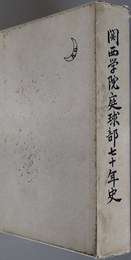 関西学院庭球部七十年史